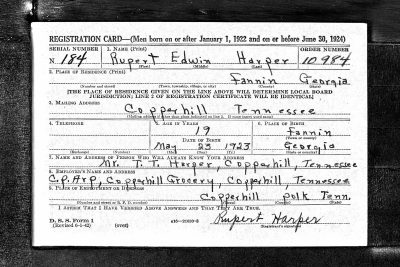 REGISTRATION CARD—(Men born on or after January 1, 1922 and on or before June 30, 1924)
SERIAL NUMBER 1. NAME (Print) ORDER NUMBER
N 184 Rupert Edwin Harper 10984
(First) (Middle) (Last)
2. PLACE OF RESIDENCE (Print)
Fannin Georgia
(Number and street) (Town, township, village, or city) (County) (State)
[THE PLACE OF RESIDENCE GIVEN ON THE LINE ABOVE WILL DETERMINE LOCAL BOARD
JURISDICTION; LINE 2 OF REGISTRATION CERTIFICATE WILL BE IDENTICAL]
3. MAILING ADDRESS
Copperhill Tennessee
4. TELEPHONE 5. AGE IN YEARS 6. PLACE OF BIRTH
19 Fannin
DATE OF BIRTH
May 23 1923 Georgia
(Exchange) (Number) (Mo.) (Day) (Yr.) (State or country)
7. NAME AND ADDRESS OF PERSON WHO WILL ALWAYS KNOW YOUR ADDRESS
Mr. T. T. Harper, Copperhill, Tennessee
8. EMPLOYER'S NAME AND ADDRESS
C.P. Arp, Copperhill Grocery, Copperhill, Tennessee
9. PLACE OF EMPLOYMENT OR BUSINESS
Copperhill polk Tenn.
(Number and street or R. F. D. number) (Town) (County) (State)
I AFFIRM THAT I HAVE VERIFIED ABOVE ANSWERS AND THAT THEY ARE TRUE.
D. S. S. Form 1
(Revised 6-9-42) (over) Rupert Harper
(Registrant's signature)